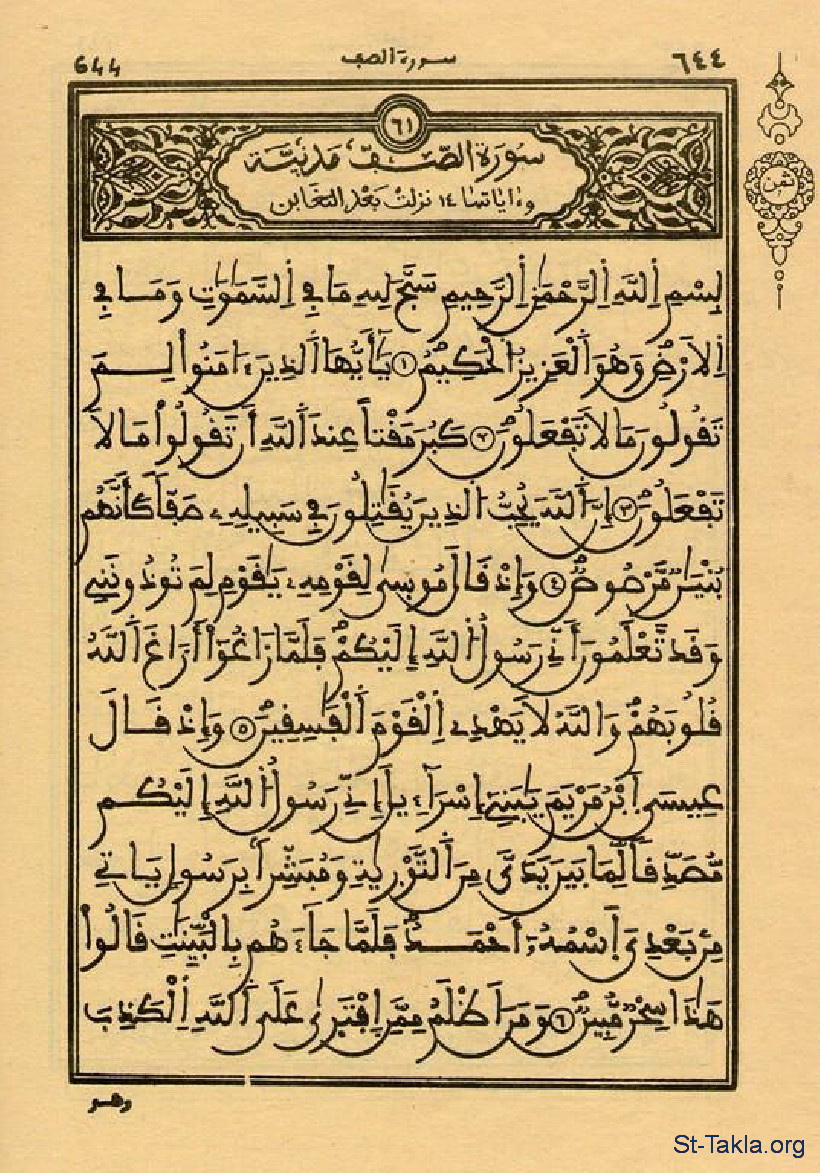 644 سورة الصف ٦٤٤
٦١
سُورَةُ الصَّفِّ مَدَنِيَّة
وءاياتها ١٤ نزلت بَعْد التغَابن
ثمن
بِسْمِ اِ۬للَّهِ اِ۬لرَّحْمَٰنِ اِ۬لرَّحِيمِ سَبَّحَ لِلهِ مَا فِے اِ۬لسَّمَٰوَٰتِ وَمَا فِے
اِ۬لَارْضِ وَهُوَ اَ۬لْعَزِيزُ اُ۬لْحَكِيمُ ١ يَٰٓأَيُّهَا اَ۬لذِينَ ءَامَنُواْ لِمَ
تَقُولُونَ مَا لَا تَفْعَلُونَ ٢ كَبُرَ مَقْتاً عِندَ اَ۬للَّهِ أَن تَقُولُواْ مَا لَا
تَفْعَلُونَ ٣ إِنَّ اَ۬للَّهَ يُحِبُّ اُ۬لذِينَ يُقَٰتِلُونَ فِے سَبِيلِهِۦ صَفّاً كَأَنَّهُم
بُنْيَٰنٌ مَّرْصُوصٌ ٤ وَإِذْ قَالَ مُوسَىٰ لِقَوْمِهِۦ يَٰقَوْمِ لِمَ تُوذُونَنِے
وَقَد تَّعْلَمُونَ أَنِّے رَسُولُ اُ۬للَّهِ إِلَيْكُمْ فَلَمَّا زَاغُوٓاْ أَزَاغَ اَ۬للَّهُ
قُلُوبَهُمْ وَاللَّهُ لَا يَهْدِے اِ۬لْقَوْمَ اَ۬لْفَٰسِقِينَ ٥ وَإِذْ قَالَ
عِيسَى اَ۪بْنُ مَرْيَمَ يَٰبَنِےٓ إِسْرَآءِيلَ إِنِّے رَسُولُ اُ۬للَّهِ إِلَيْكُم
مُّصَدِّقاً لِّمَا بَيْنَ يَدَيَّ مِنَ اَ۬لتَّوْرَيٰةِ وَمُبَشِّراً بِرَسُولٍ يَاتِے
مِنۢ بَعْدِيَ اَ۪سْمُهُۥٓ أَحْمَدُ فَلَمَّا جَآءَهُم بِالْبَيِّنَٰتِ قَالُواْ
هَٰذَا سِحْرٌ مُّبِينٌ ٦ وَمَنَ اَظْلَمُ مِمَّنِ اِ۪فْتَرَىٰ عَلَى اَ۬للَّهِ اِ۬لْكَذِبَ
وهو
St-Takla.org